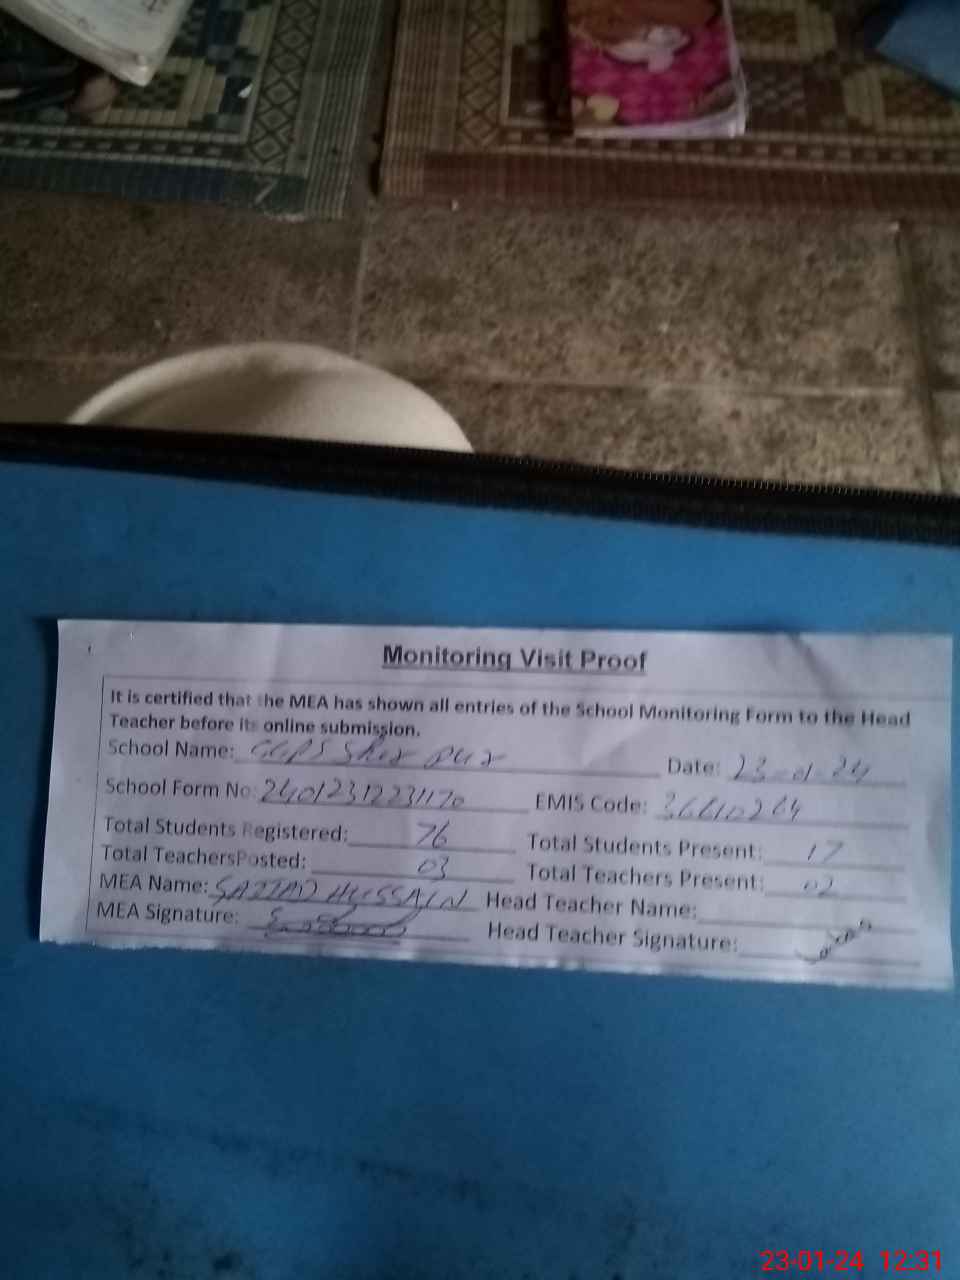 Monitoring Visit Proof
It is certified that the MEA has shown all entries of the School Monitoring Form to the Head
Teacher before its online submission.
School Name: GGPS Sher pur Date: 23-01-24
School Form No: 240123122231170 EMIS Code:
Total Students Registered: 76 Total Students Present: 17
Total TeachersPosted: 03 Total Teachers Present: 02
MEA Name: SAJJAD HUSSAIN Head Teacher Name:
MEA Signature: Head Teacher Signature:
23-01-24 12:31